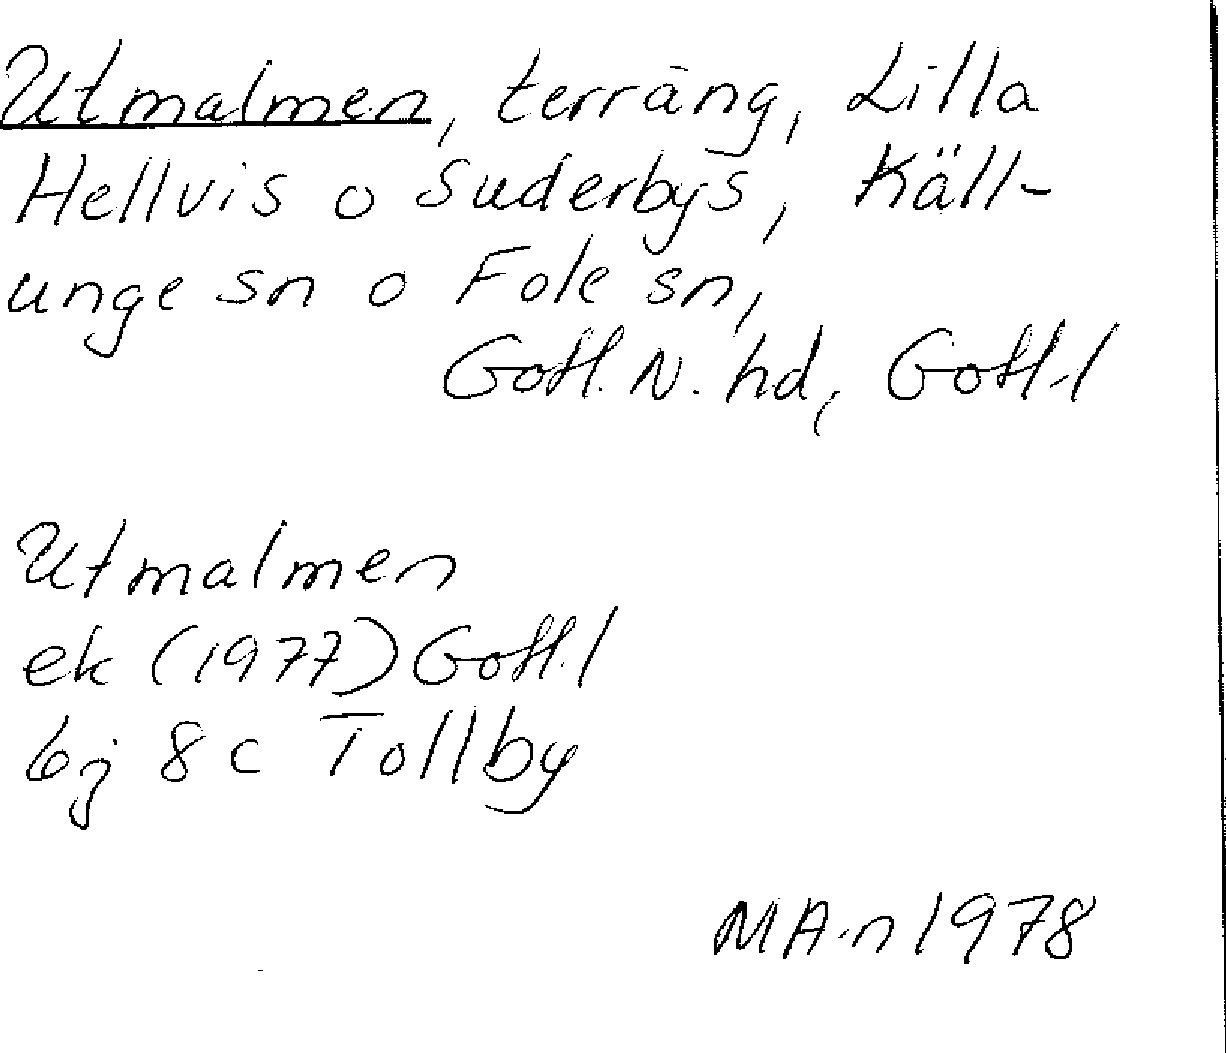 Utmalmen, terräng, Lilla
Hellvis o Suderbys, Käll-
unge sn o Fole sn,
Gotl. N. hd, Gotl. l
Utmalmen
ek (1977) Gotl. l
bj 8c Tollby
MA-n 1978